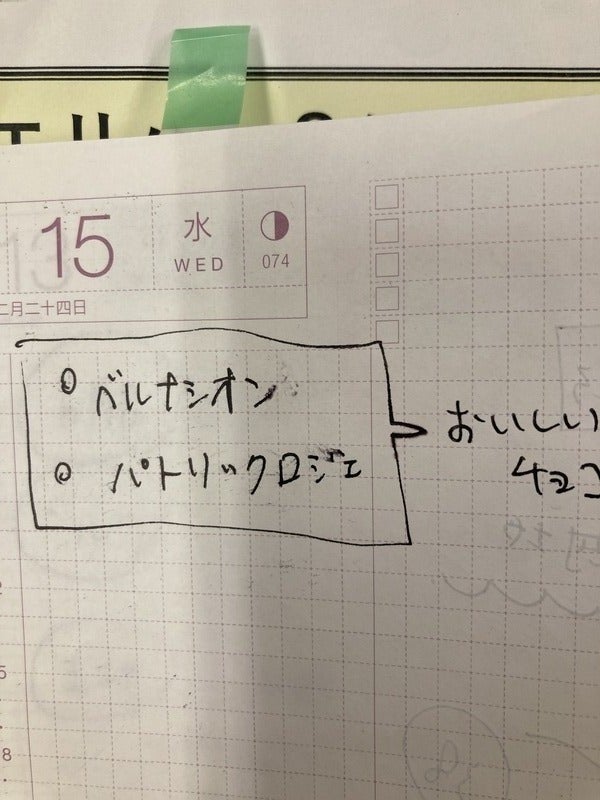 15
水
WED
074
二月二十四日
ベルナシオン
パトリックロジェ
おいしい
チョコ
8